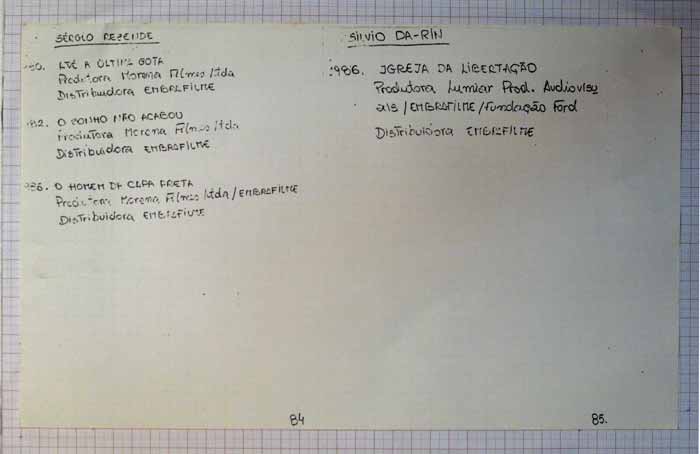 SÉRGIO REZENDE
80. ATÉ A ÚLTIMA GOTA
Produtora Morena Filmes ltda
Distribuidora EMBRAFILME
982. O SONHO NÃO ACABOU
Produtora Morena Filmes ltda
Distribuidora EMBRAFILME
986. O HOMEM DA CAPA PRETA
Produtora Morena Filmes ltda/EMBRAFILME
Distribuidora EMBRAFILME
84
SILVIO DA-RIN
1986. IGREJA DA LIBERTAÇÃO
Produtora Lumiar Prod. Audiovisu
ais/EMBRAFILME/Fundação Ford
Distribuidora EMBRAFILME
85.